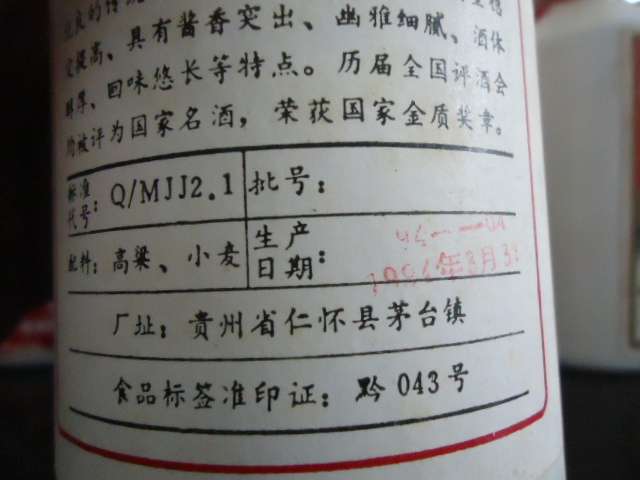 优良的传统
定提高、具有酱香突出、幽雅细腻、酒体
醇厚、回味悠长等特点。历届全国评酒会
均被评为国家名酒，荣获国家金质奖章。
标准代号：Q/MJJ2.1 批号：
配料：高粱、小麦 生产日期：
厂址：贵州省仁怀县茅台镇
食品标签准印证：黔043号